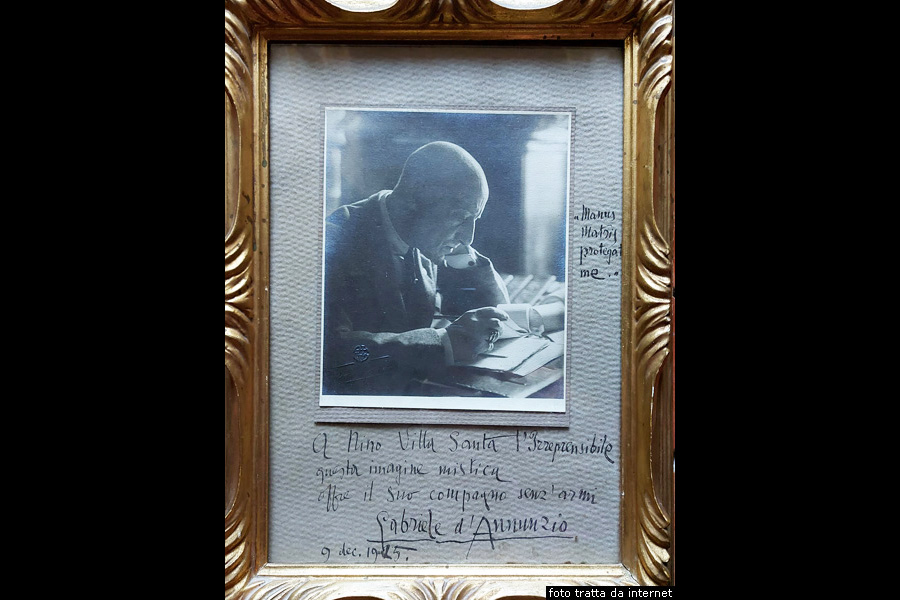 „Manus
Matris
protegat
me.„
A Nino Villa Santa l'Irreprensibile
questa imagine mistica
offre il Suo compagno senz'armi
Gabriele d'Annunzio
9 dec. 1925.
foto tratta da internet